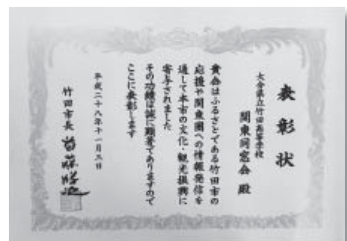 表彰状
大分県立竹田高等学校
関東同窓会 殿
貴会はふるさとである竹田市の
応援や関東圏への情報発信を
通して本市の文化・観光振興に
寄与されました
その功績は誠に顕著でありますので
ここに表彰します
平成二十八年十一月三日
竹田市長 首藤勝次